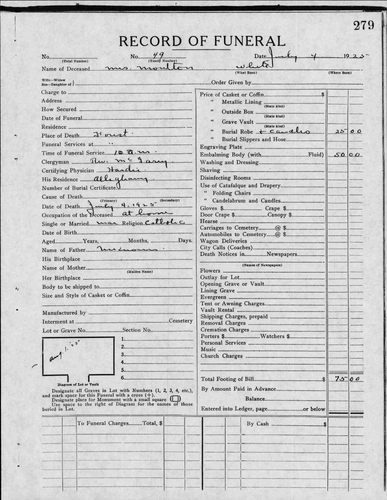 279
RECORD OF FUNERAL
No. No. 49 Date July 4 1925
(Total Number) (Yearly Number)
Name of Deceased Mrs. Moulton White
(What Race) (Where Born)
Wife—Widow
Son—Daughter of Order Given by
Charge to
Address
How Secured
Date of Funeral
Residence
Place of Death
Funeral Services at
Time of Funeral Service 10 a.m.
Clergyman Rev.
Certifying Physician
His Residence Alleghany
Number of Burial Certificate
Cause of Death
(Primary) (Secondary)
Date of Death July 4, 1925
Occupation of the Deceased at home
Single or Married mar Religion Catholic
Date of Birth
Aged, Years, Months, Days.
Name of Father
His Birthplace
Name of Mother
(Maiden Name)
Her Birthplace
Body to be shipped to
Size and Style of Casket or Coffin
Manufactured by
Interment at Cemetery
Lot or Grave No. Section No.
1.
2.
3.
4.
5.
6.
Diagram of Lot or Vault
Designate all Graves in Lot with Numbers (1, 2, 3, 4, etc.),
and mark space for this Funeral with a cross (+).
Designate place for Monument with a small square
Use space to the right of Diagram for the names of those
buried in Lot.
Price of Casket or Coffin $
" Metallic Lining
(State kind)
" Outside Box
(State kind)
" Grave Vault
(State kind)
" Burial Robe + candles 25 00
(State kind)
" Burial Slippers and Hose
Engraving Plate
Embalming Body (with Fluid) 50 00
Washing and Dressing
Shaving
Disinfecting Rooms
Use of Catafalque and Drapery
" Folding Chairs
" Candelabrum and Candles
Gloves $ Crape $
Door Crape $ Canopy $
Hearse
Carriages to Cemetery @ $
Automobiles to Cemetery @ $
Wagon Deliveries
City Calls (Coaches)
Death Notices in Newspapers
(Names of Newspapers)
Flowers
Outlay for Lot
Opening Grave or Vault
Lining Grave
Evergreen
Tent or Awning Charges
Vault Rental
Shipping Charges, prepaid
Removal Charges
Cremation Charges
Porters $ Watchers $
Personal Services
Music
Church Charges
Total Footing of Bill $ 75 00
By Amount Paid in Advance
Balance
Entered into Ledger, page or below
To Funeral Charges, Total, $ By Cash $